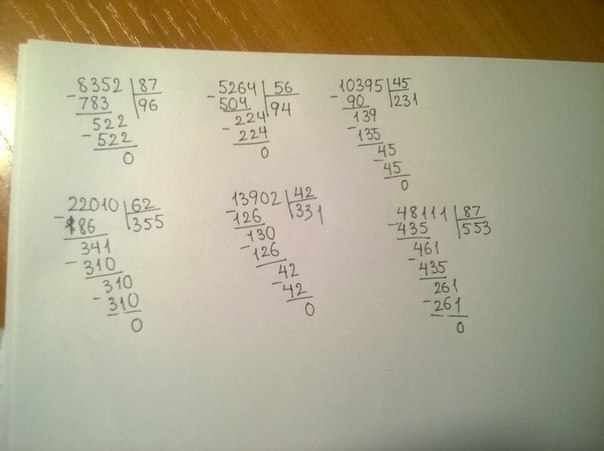 8352 87
- 783 96
522
- 522
0
5264 56
- 504 94
224
- 224
0
10395 45
- 90 231
139
- 135
45
- 45
0
22010 62
- 186 355
341
- 310
310
- 310
0
13902 42
- 126 331
130
- 126
42
- 42
0
48111 87
- 435 553
461
- 435
261
- 261
0